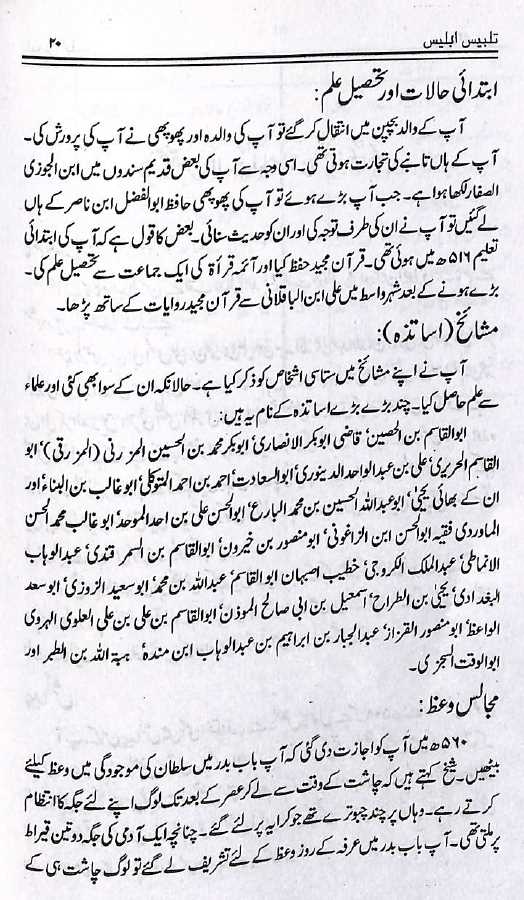 تلبیس ابلیس ۲۰
ابتدائی حالات اور تحصیل علم:
آپ کے والد بچپن میں انتقال کر گئے تو آپ کی والدہ اور پھوپھی نے آپ کی پرورش کی۔
آپ کے ہاں تانبے کی تجارت ہوتی تھی۔ اسی وجہ سے آپ کی بعض قدیم سندوں میں ابن الجوزی
الصفار لکھا ہوا ہے۔ جب آپ بڑے ہوئے تو آپ کی پھوپھی حافظ ابوالفضل ابن ناصر کے ہاں
لے گئیں تو آپ نے ان کی طرف توجہ کی اور ان کو حدیث سنائی۔ بعض کا قول ہے کہ آپ کی ابتدائی
تعلیم ۵۱۶ھ میں ہوئی تھی۔ قرآن مجید حفظ کیا اور آئمہ قرأۃ کی ایک جماعت سے تحصیل علم کی۔
بڑے ہونے کے بعد شہر واسط میں علی ابن الباقلانی سے قرآن مجید روایات کے ساتھ پڑھا۔
مشائخ (اساتذہ):
آپ نے اپنے مشائخ میں ستاسی اشخاص کو ذکر کیا ہے۔ حالانکہ ان کے سوا بھی کئی اور علماء
سے علم حاصل کیا۔ چند بڑے بڑے اساتذہ کے نام یہ ہیں:
ابوالقاسم بن الحصین' قاضی ابوبکر الانصاری' ابوبکر محمد بن الحسین المزرنی (المزرقی)' ابو
القاسم الحریری' علی بن عبدالواحد الدینوری' ابوالسعادت' احمد بن احمد المتوکلی' ابو غالب بن البناء' اور
ان کے بھائی یحییٰ' ابوعبداللہ الحسین بن محمد البارع' ابوالحسن علی بن احد الموحد' ابو غالب محمد الحسن
الماوردی' فقیہ ابوالحسن ابن الزاغونی' ابو منصور بن خیرون' ابوالقاسم بن السمرقندی' عبدالوہاب
الانماطی' عبدالملک الکروجی' خطیب اصبہان ابوالقاسم عبداللہ بن محمد' ابوسعید الزوزی' ابو سعد
البغدادی' یحییٰ بن الطراح' اسمعیل بن ابی صالح الموذن' ابوالقاسم بن علی بن علی العلوی الہروی
الواعظ' ابو منصور القزاز' عبدالجبار بن ابراہیم بن عبدالوہاب ابن مندہ' ہبۃ اللہ بن الطبر اور
ابوالوقت السجزی۔
مجالس وعظ:
۵۶۰ھ میں آپ کو اجازت دی گئی کہ آپ باب بدر میں سلطان کی موجودگی میں وعظ کیلئے
بیٹھیں۔ شیخ کہتے ہیں کہ چاشت کے وقت سے لے کر عصر کے بعد تک لوگ اپنے لئے جگہ کا انتظام
کرتے رہے۔ وہاں پر چند چبوترے تھے جو کرایہ پر لئے گئے۔ چنانچہ ایک آدمی کی جگہ دو تین قیراط
پر ملتی تھی۔ آپ باب بدر میں عرفہ کے روز وعظ کے لئے تشریف لے گئے تو لوگ چاشت ہی کے